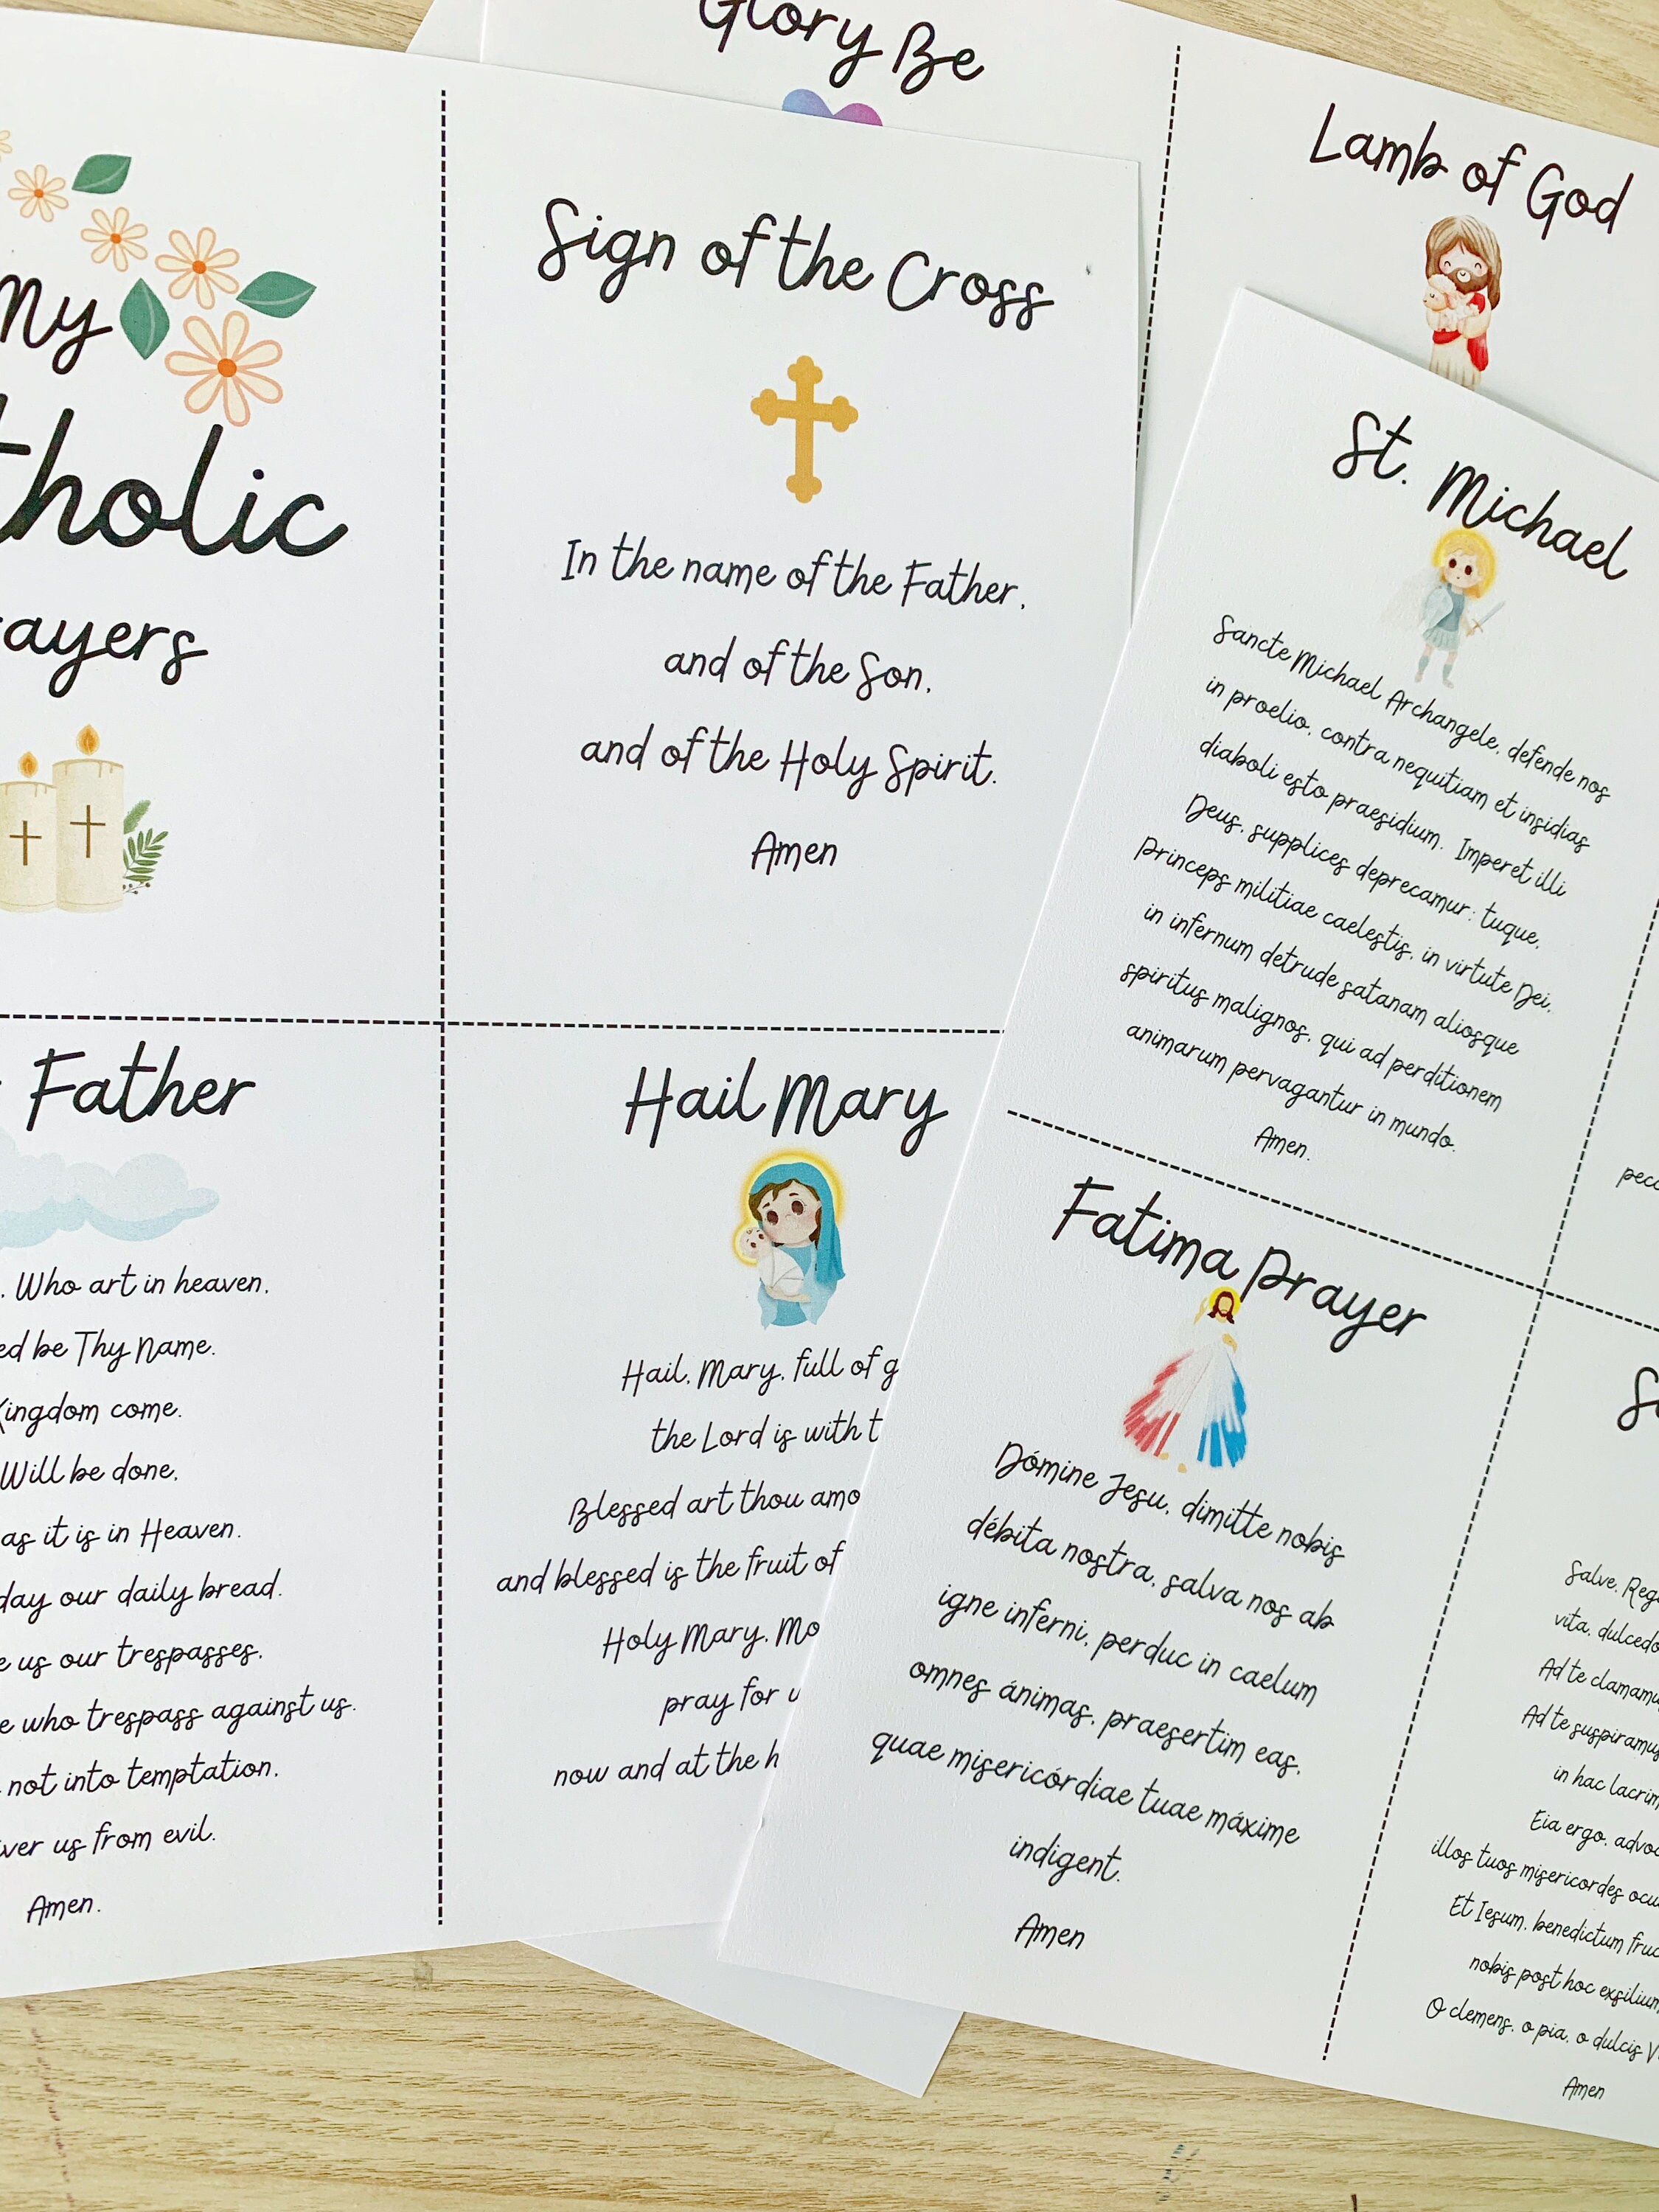 Glory Be
Lamb of God
My
tholic
ayers
Sign of the Cross
In the name of the Father,
and of the Son,
and of the Holy Spirit.
Amen
Father
. Who art in heaven,
ed be Thy Name.
Kingdom come.
Will be done,
as it is in Heaven.
day our daily bread.
e us our trespasses,
e who trespass against us.
not into temptation,
ver us from evil.
Amen.
Hail Mary
Hail, Mary, full of g
the Lord is with t
Blessed art thou amo
and blessed is the fruit of
Holy Mary, Mo
pray for u
now and at the h
St. Michael
Sancte Michael Archangele, defende nos
in proelio, contra nequitiam et insidias
diaboli esto praesidium. Imperet illi
Deus, supplices deprecamur: tuque,
Princeps militiae caelestis, in virtute Dei,
in infernum detrude satanam aliosque
spiritus malignos, qui ad perditionem
animarum pervagantur in mundo.
Amen.
pecc
Fatima Prayer
Dómine Jesu, dimitte nobis
débita nostra, salva nos ab
igne inferni, perduc in caelum
omnes ánimas, praesertim eas,
quae misericórdiae tuae máxime
indigent.
Amen
Sa
Salve, Reg
vita, dulcedo
Ad te clamamu
Ad te suspiramus
in hac lacrim
Eia ergo, advoc
illos tuos misericordes ocu
Et Iesum, benedictum fruc
nobis post hoc exsilium
O clemens, o pia, o dulcis V
Amen